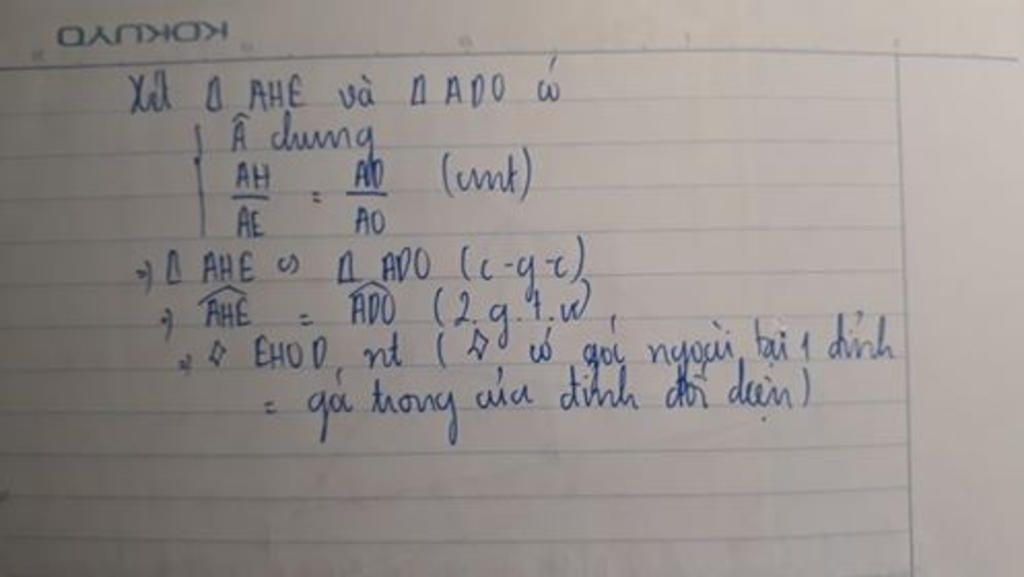 KOKUYO
Xét Δ AHE và Δ ADO có
Â chung
AH/AE = AD/AO (cmt)
=> Δ AHE ∽ Δ ADO (c-g-c)
=> \widehat{AHE} = \widehat{ADO} (2.g.t.ư)
=> ◊ EHOD nt (◊ có góc ngoài tại 1 đỉnh
= góc trong của đỉnh đối diện)